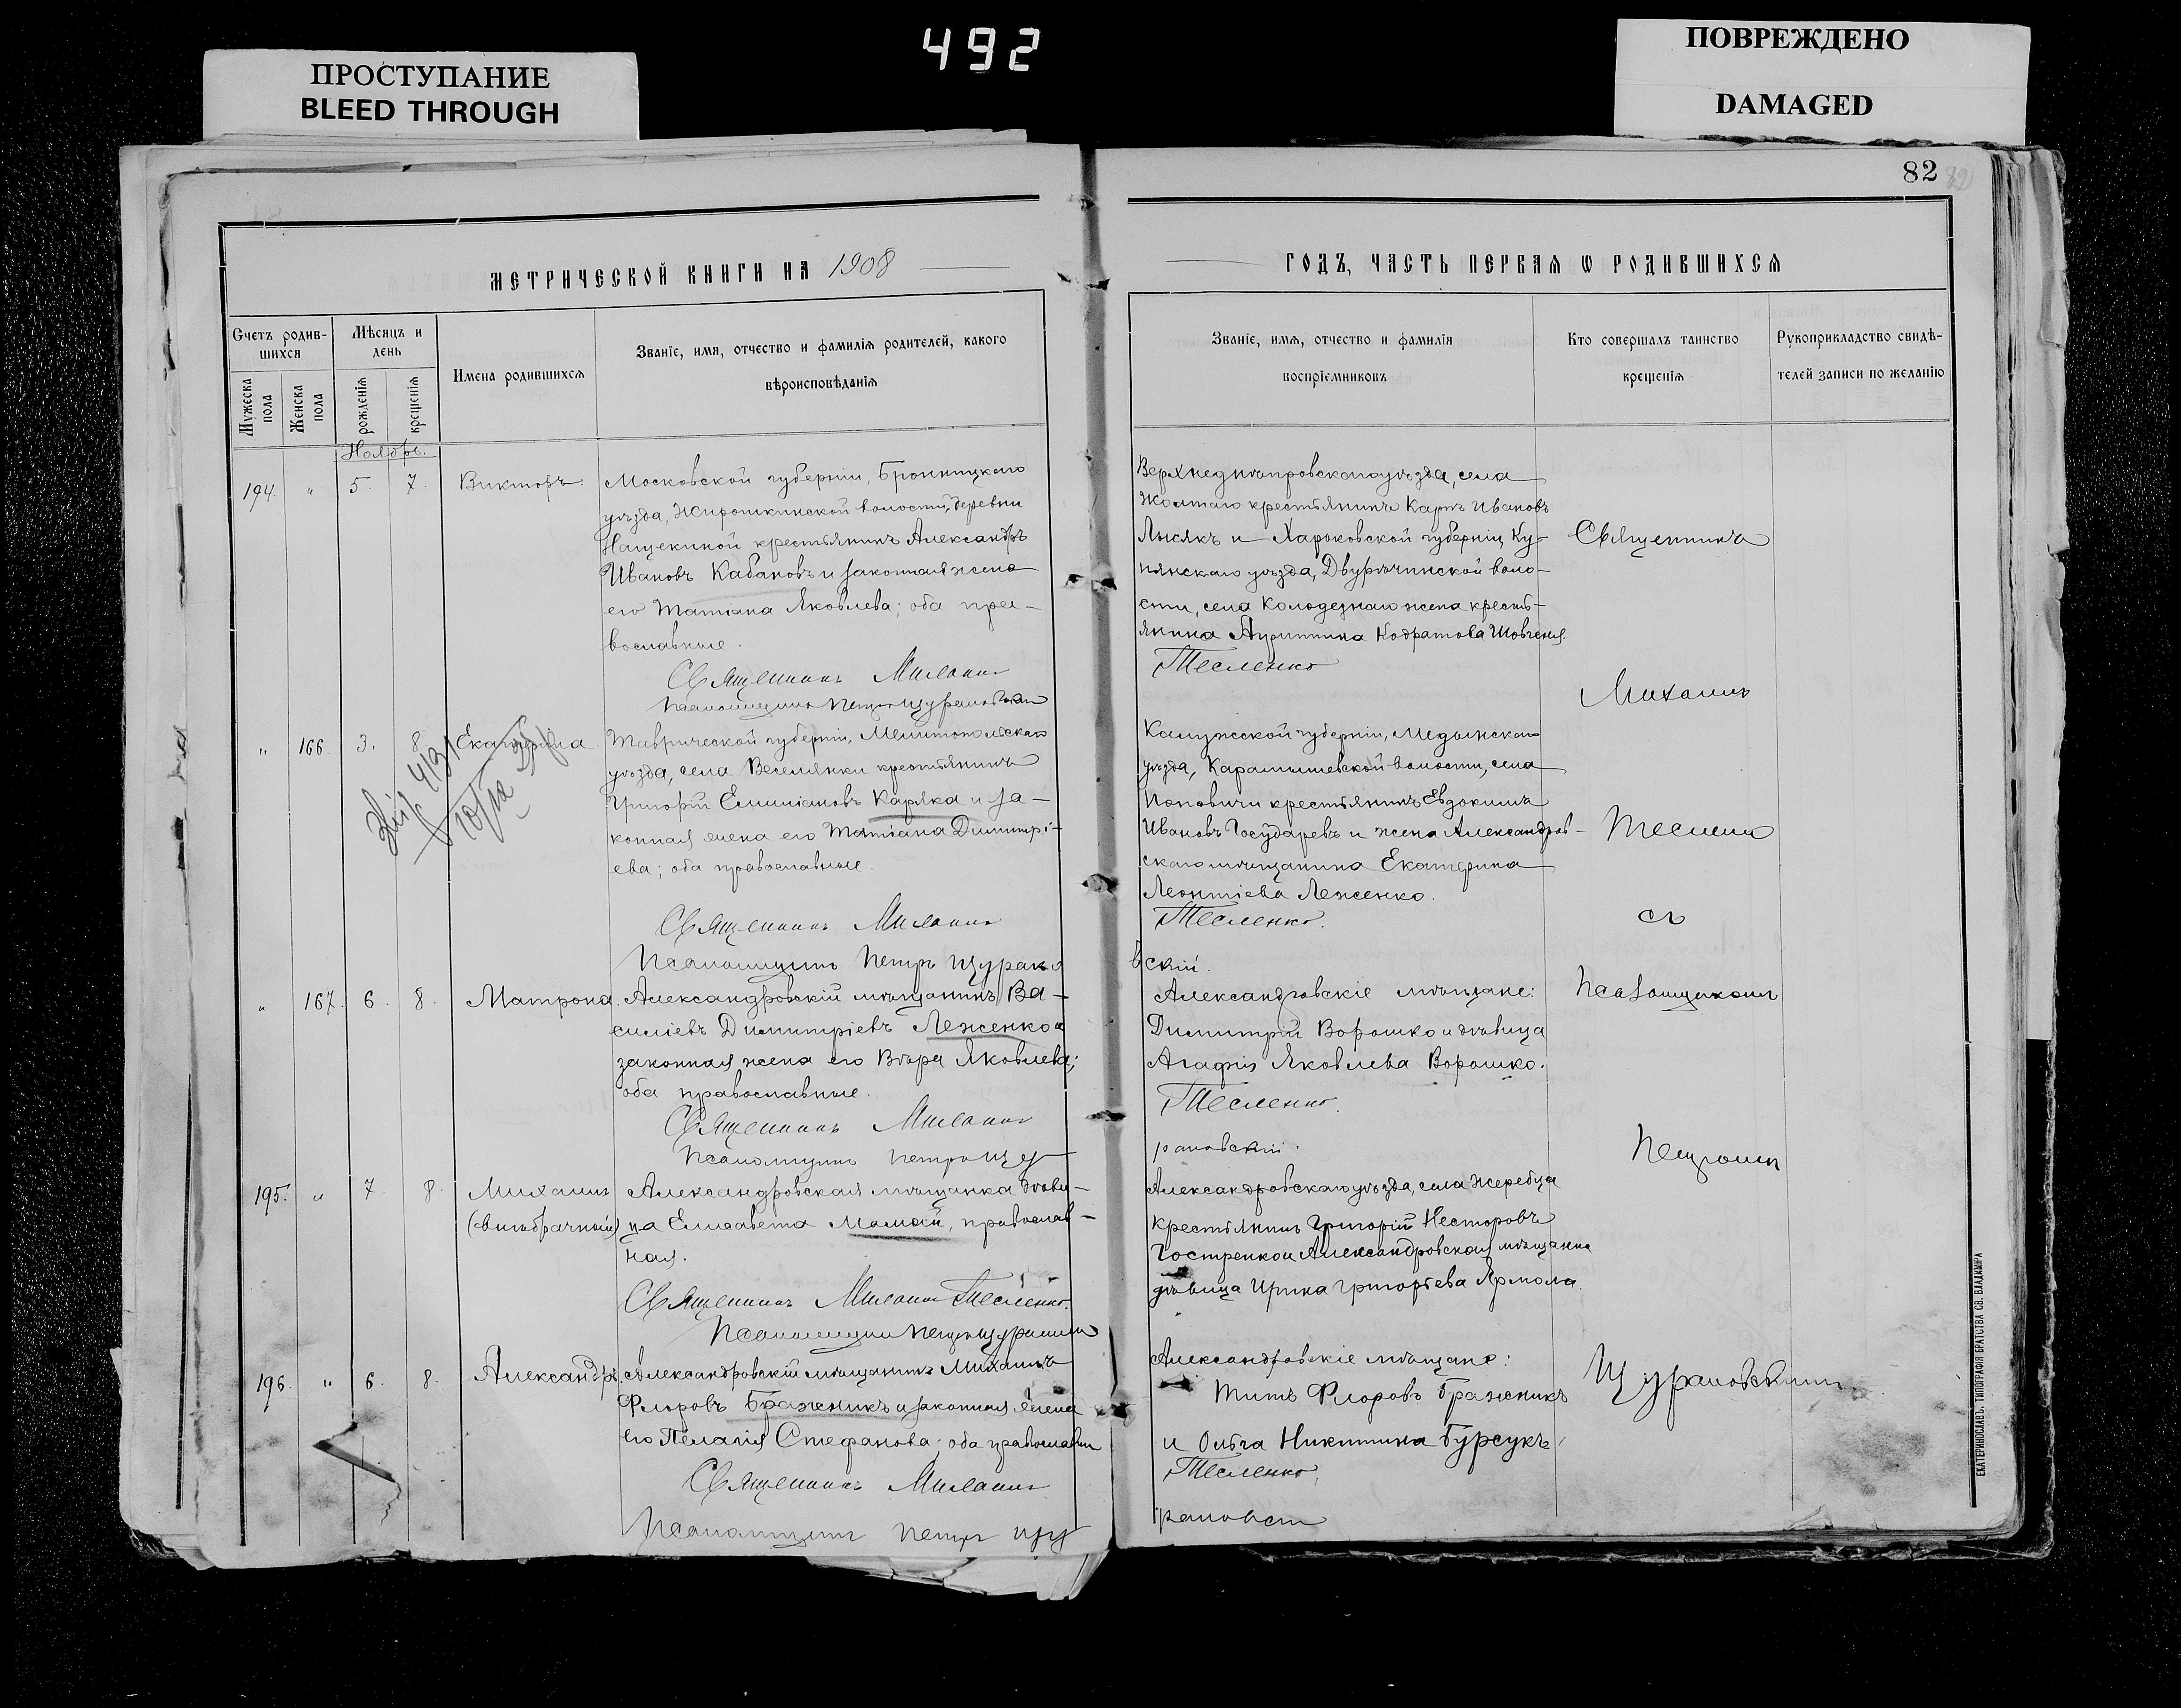 492
ПРОСТУПАНИЕ
BLEED THROUGH
ПОВРЕЖДЕНО
DAMAGED
82
МЕТРИЧЕСКОЙ КНИГИ НА 1908
Счетъ родив-
шихся
Мѣсяцъ и
день
Мужеска пола
Женска пола
рожденія
крещенія
Имена родившихся
Званіе, имя, отчество и фамилія родителей, какого
вѣроисповѣданія
Ноябрь.
194. " 5. 7. Викторъ.
Московской губерніи, Бронницкаго
уѣзда, Жирошкинской волости, деревни
Нащекиной крестьянинъ Александръ
Ивановъ Кабановъ и законная жена
его Татіана Яковлева; оба пра-
вославные.
Священникъ Михаилъ
Псаломщикъ Петръ Щурановскій
" 166. 3. 8. Екатерина
Таврической губерніи, Мелитопольскаго
уѣзда, села Веселянки крестьянинъ
Григорій Емиліановъ Каряка и за-
конная жена его Татіана Димитрі-
ева; оба православные.
Священникъ Михаилъ
Псаломщикъ Петръ Щурано
" 167. 6. 8. Матрона.
Александровскій мѣщанинъ Ва-
силіевъ Димитріевъ Леженко и
законная жена его Вѣра Яковлева;
оба православные.
Священникъ Михаилъ
Псаломщикъ Петръ Щу
195. " 7. 8. Михаилъ
(внѣбрачный)
Александровская мѣщанка дѣви-
ца Елисавета Мамай, православ-
ная.
Священникъ Михаилъ Тесленко.
Псаломщикъ Петръ
196. " 6. 8. Александръ.
Александровскій мѣщанинъ Михаилъ
Флоровъ Бражникъ и законная жена
его Пелагія Стефанова; оба православны
Священникъ Михаилъ
Псаломщикъ Петръ Щу
ГОДЪ, ЧАСТЬ ПЕРВАЯ Ѡ РОДИВШИХСЯ
Званіе, имя, отчество и фамилія
воспріемниковъ
Кто совершалъ таинство
крещенія
Рукоприкладство свидѣ-
телей записи по желанію
Верхнеднѣпровскаго уѣзда, села
Жолтаго крестьянинъ Карпъ Ивановъ
Лысякъ и Харьковской губерніи, Ку-
пянскаго уѣзда, Двурѣчинской воло-
сти, села Колодезнаго жена кресть-
янина
Тесленко
Калужской губерніи, Медынскаго
уѣзда, Карамышевской волости, села
Поповичи крестьянинъ Евдокимъ
Ивановъ Государевъ и жена Александров-
скаго мѣщанина Екатерина
Леонтіева Леженко.
Тесленко.
вскій.
Александровскіе мѣщане:
Димитрій Ворошко и дѣвица
Агафія Яковлева Ворошко.
Тесленко.
рановскій.
Александровскаго уѣзда, села Жеребца
крестьянинъ Григорій Несторовъ
Гостренко и Александровская мѣщанка
дѣвица Ирина Григорьева Ярмола.
Александровскіе мѣщане:
Титъ Флоровъ Бражникъ
и Ольга Никитина Бурсукъ.
Тесленко.
Священникъ
Михаилъ
Тесленко
съ
Псаломщикомъ
Петромъ
Щурановскимъ
ЕКАТЕРИНОСЛАВЪ, ТИПОГРАФІЯ БРАТСТВА СВ. ВЛАДИМІРА